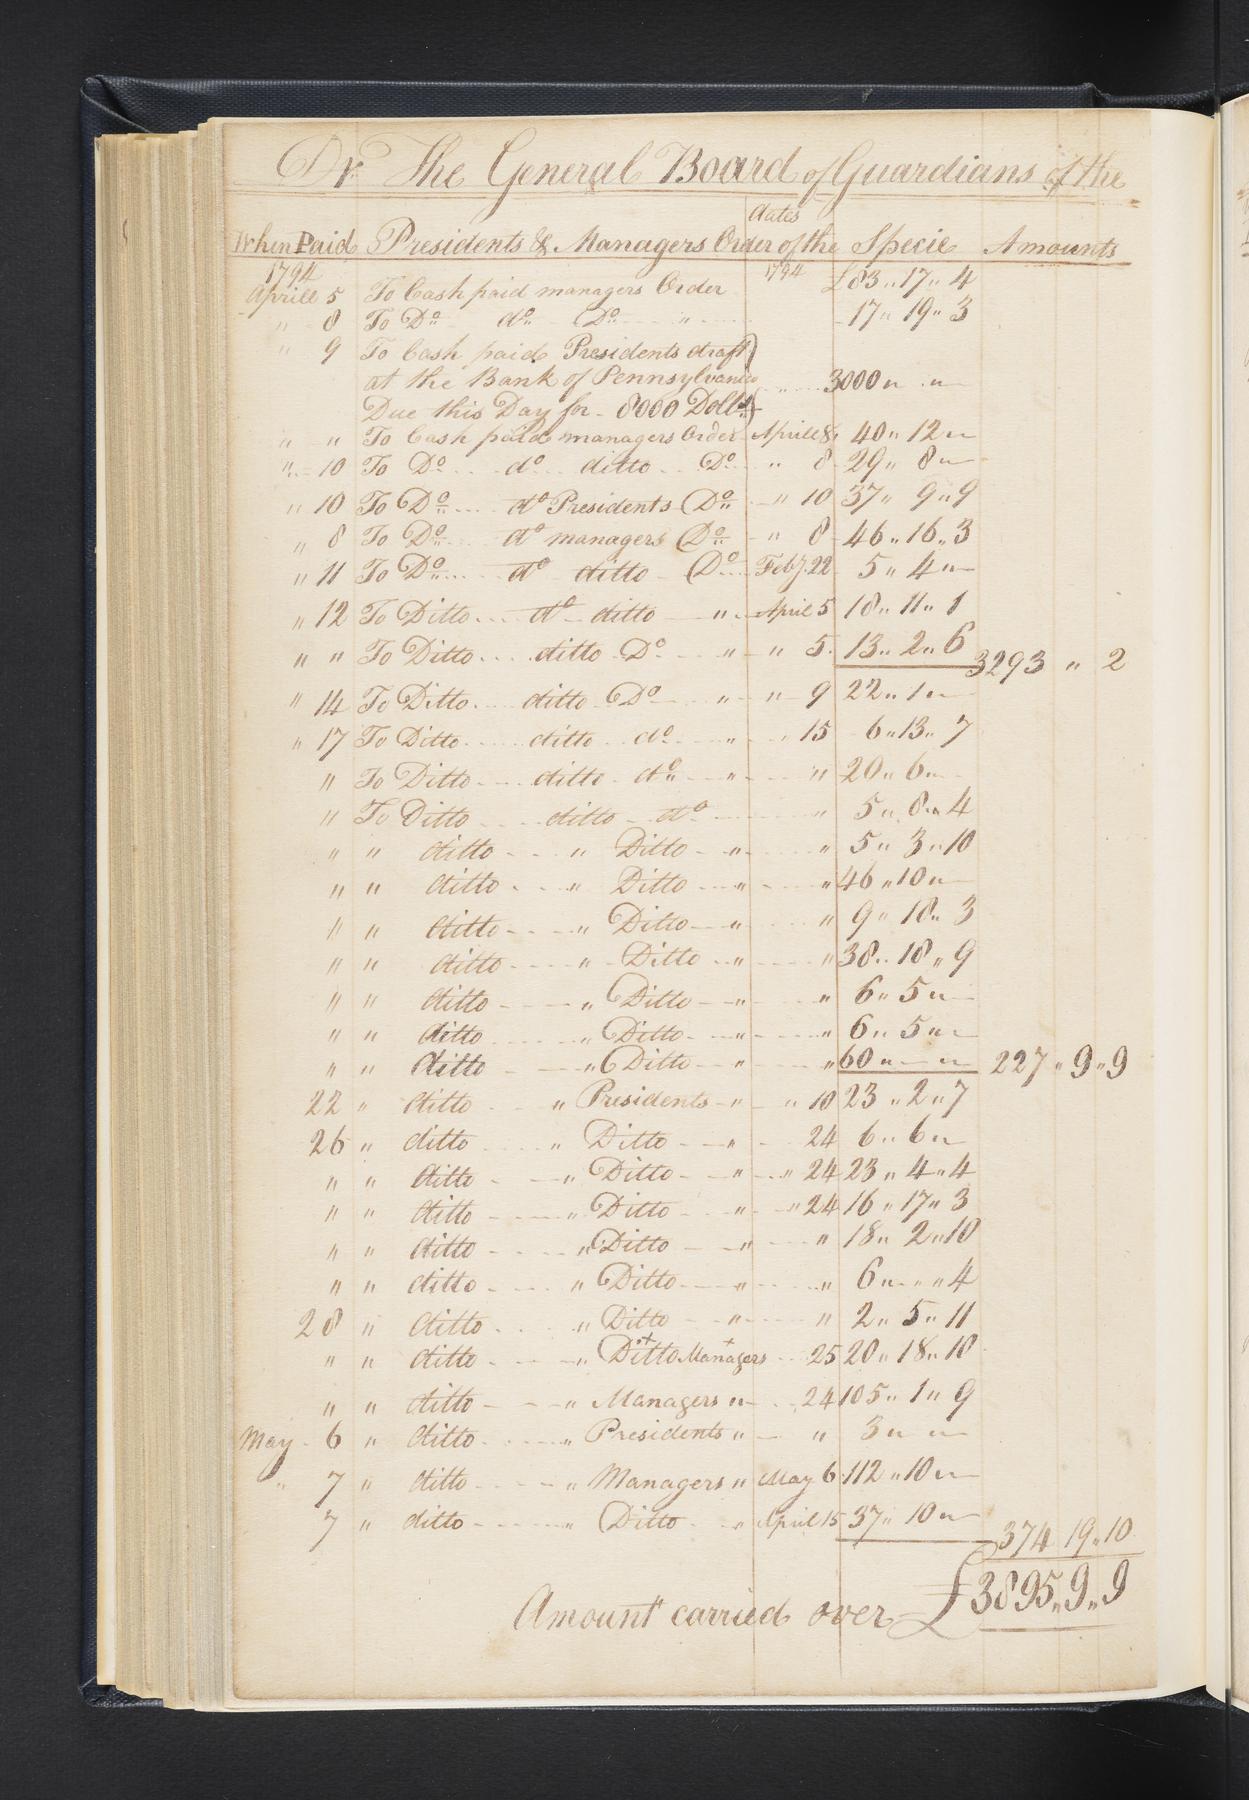 Dr. The General Board of Guardians of the
When Paid Presidents & Managers Order of the dates Specie Amounts
1794 1794
Aprill 5 To Cash paid managers Order £83 〃 17 〃 4
〃 8 To Do do Do 〃 17 〃 19 〃 3
〃 9 To Cash paid Presidents draft
at the Bank of Pennsylvania 3000 〃 〃
Due this Day for 8000 Dolls
〃 〃 To Cash paid managers Order Aprill 8 40 〃 12 〃
〃 10 To Do do ditto Do 〃 8 29 〃 8 〃
〃 10 To Do do Presidents Do 〃 10 37 〃 9 〃 9
〃 8 To Do do managers Do 〃 8 46 〃 16 〃 3
〃 11 To Do do ditto Do Feby 22 5 〃 4 〃
〃 12 To Ditto do ditto 〃 April 5 18 〃 11 〃 1
〃 〃 To Ditto ditto Do 〃 〃 5 13 〃 2 〃 6 3293 〃 2
〃 14 To Ditto ditto Do 〃 〃 9 22 〃 1 〃
〃 17 To Ditto ditto do 〃 〃 15 6 〃 13 〃 7
〃 To Ditto ditto do 〃 〃 20 〃 6 〃
〃 To Ditto ditto do 〃 5 〃 8 〃 4
〃 〃 ditto 〃 Ditto 〃 〃 5 〃 3 〃 10
〃 〃 ditto 〃 Ditto 〃 〃 46 〃 10 〃
〃 〃 ditto 〃 Ditto 〃 〃 9 〃 18 〃 3
〃 〃 ditto 〃 Ditto 〃 〃 38 〃 18 〃 9
〃 〃 ditto 〃 Ditto 〃 〃 6 〃 5 〃
〃 〃 ditto 〃 Ditto 〃 〃 6 〃 5 〃
〃 〃 ditto 〃 Ditto 〃 〃 60 〃 〃 227 〃 9 〃 9
22 〃 ditto 〃 Presidents 〃 〃 10 23 〃 2 〃 7
26 〃 ditto 〃 Ditto 〃 24 6 〃 6 〃
〃 〃 ditto 〃 Ditto 〃 〃 24 23 〃 4 〃 4
〃 〃 ditto 〃 Ditto 〃 〃 24 16 〃 17 〃 3
〃 〃 ditto 〃 Ditto 〃 〃 18 〃 2 〃 10
〃 〃 ditto 〃 Ditto 〃 〃 6 〃 〃 4
28 〃 ditto 〃 Ditto 〃 〃 2 〃 5 〃 11
〃 〃 ditto 〃 Ditto + Managers + 25 20 〃 18 〃 10
〃 〃 ditto 〃 Managers 〃 24 105 〃 1 〃 9
May 6 〃 ditto 〃 Presidents 〃 〃 3 〃 〃
〃 7 〃 ditto 〃 Managers 〃 May 6 112 〃 10 〃
7 〃 ditto 〃 Ditto 〃 April 15 37 〃 10 〃
374 19 〃 10
Amount carried over £3895 〃 9 〃 9